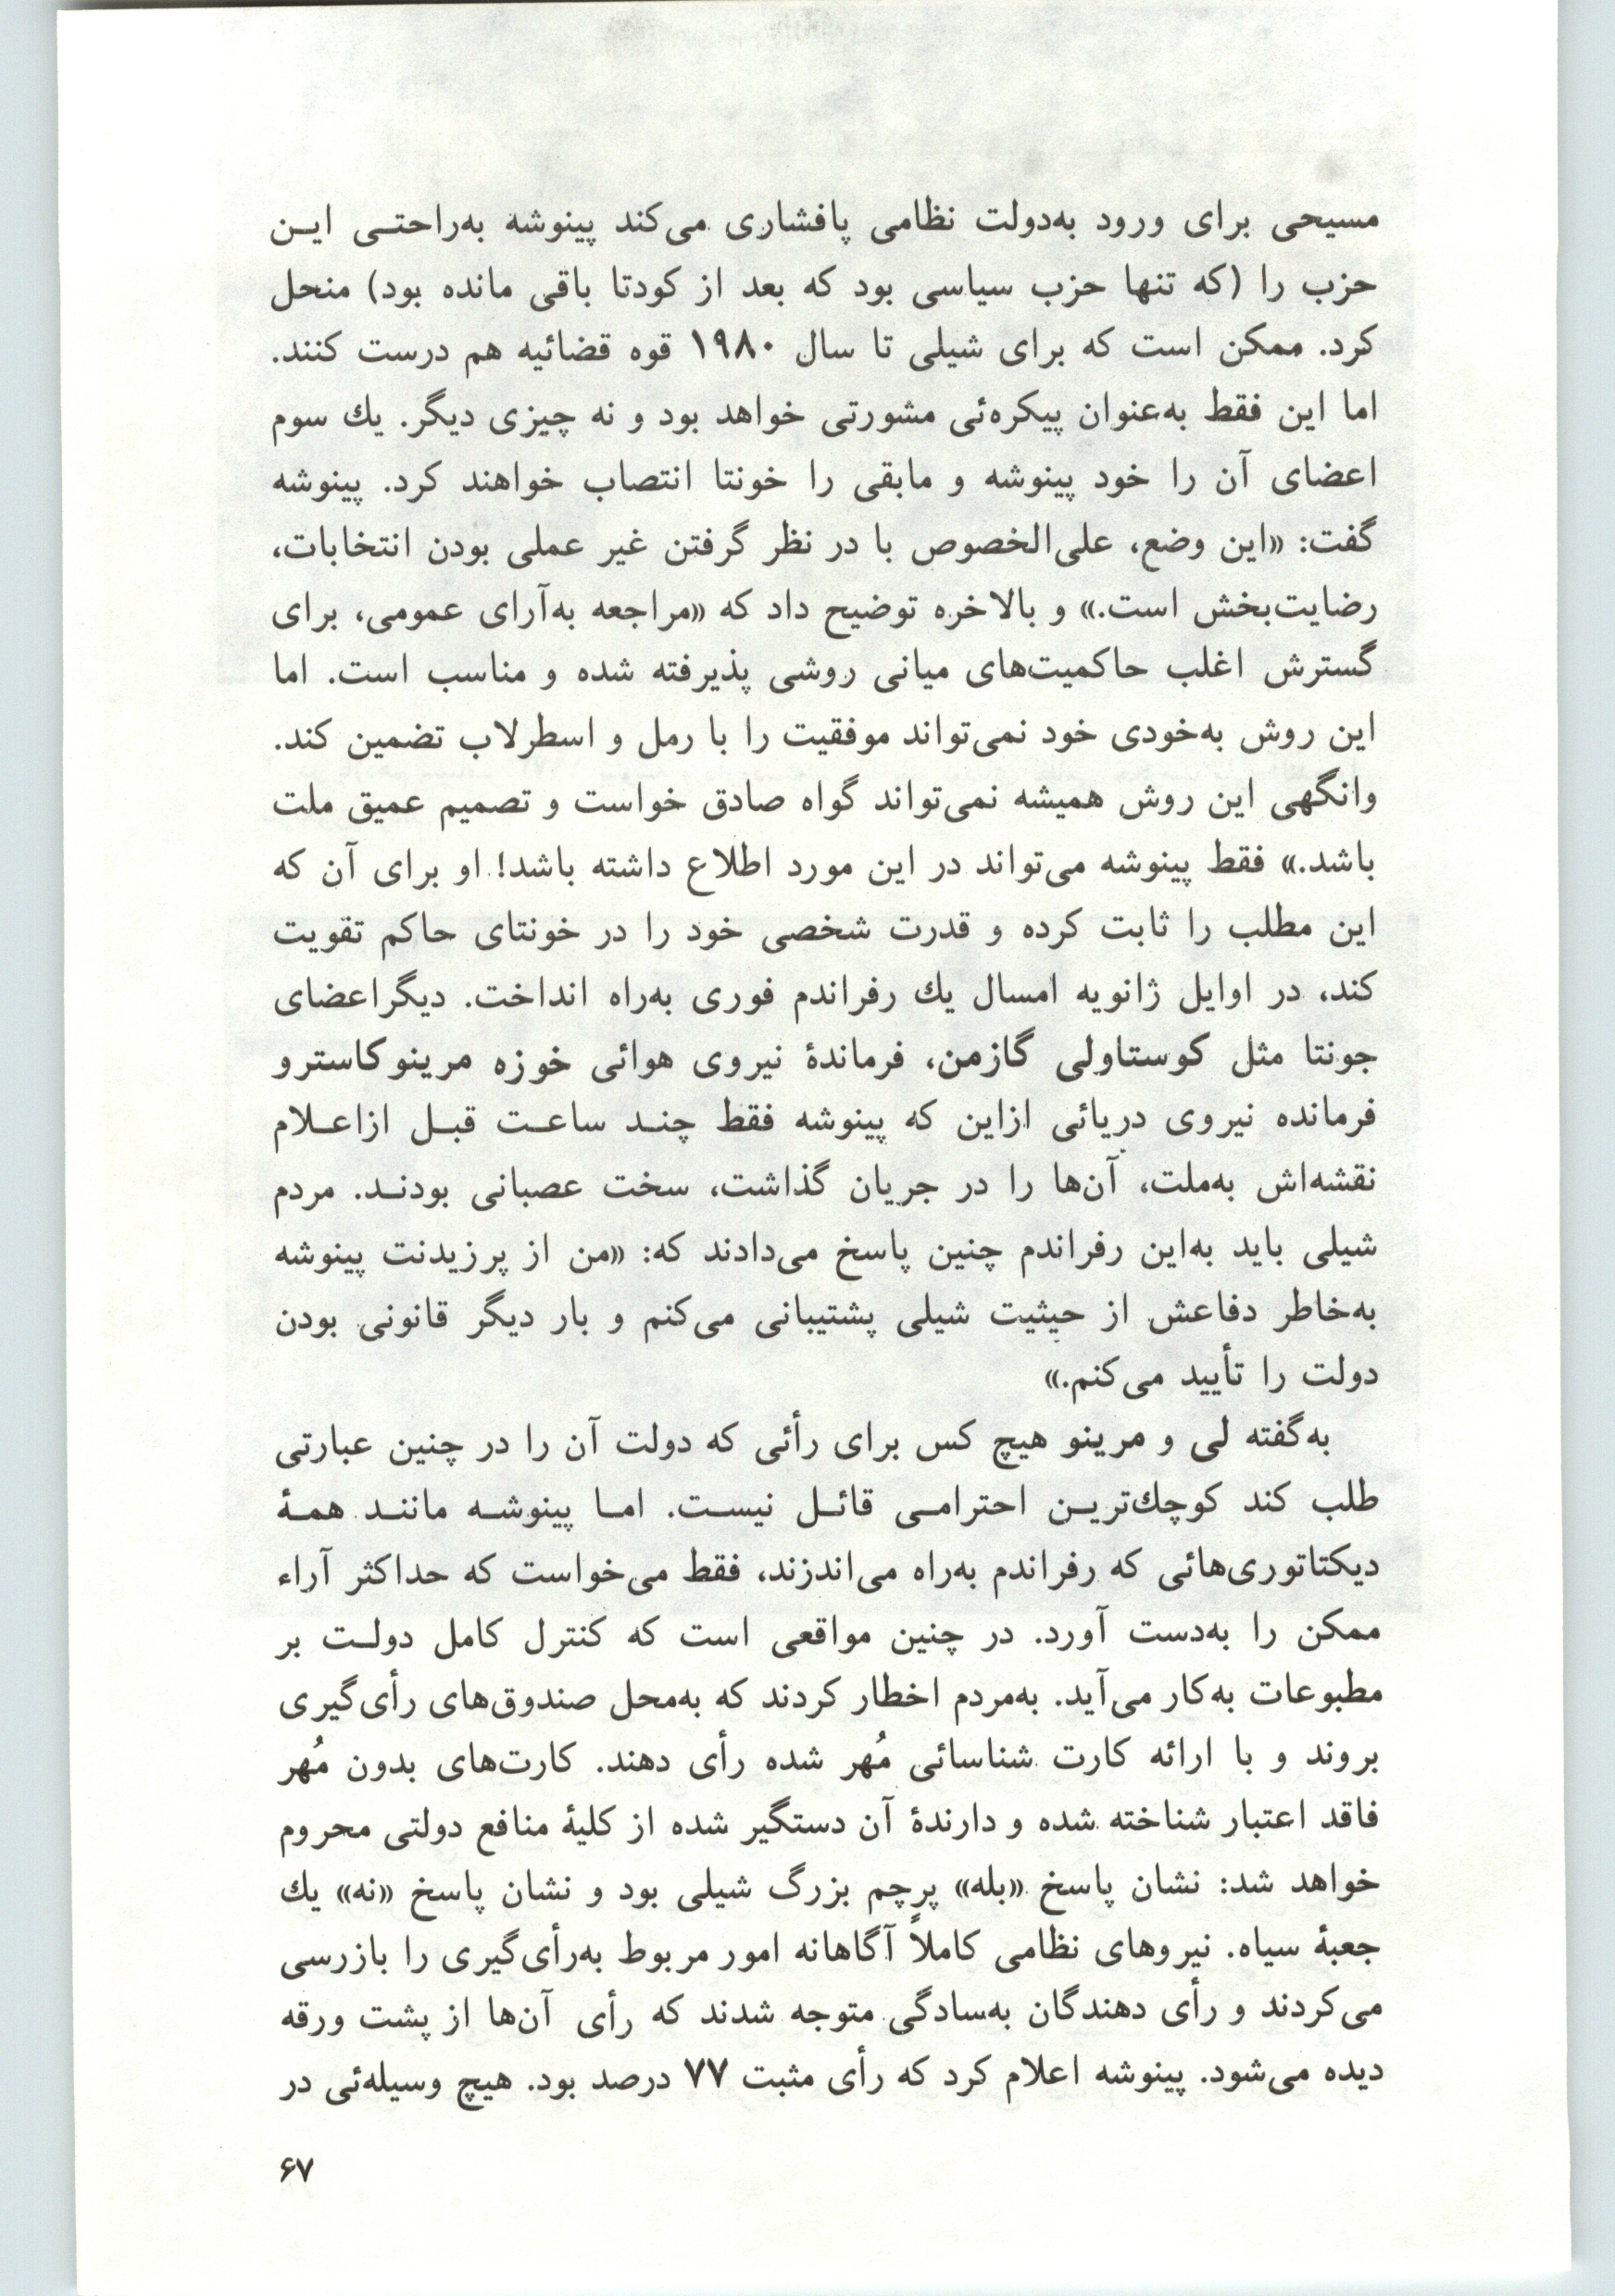 مسیحی برای ورود به‌دولت نظامی پافشاری می‌کند پینوشه به‌راحتـی ایـن
حزب را (که تنها حزب سیاسی بود که بعد از کودتا باقی مانده بود) منحل
کرد. ممکن است که برای شیلی تا سال ۱۹۸۰ قوه قضائیه هم درست کنند.
اما این فقط به‌عنوان پیکره‌ئی مشورتی خواهد بود و نه چیزی دیگر. یك سوم
اعضای آن را خود پینوشه و مابقی را خونتا انتصاب خواهند کرد. پینوشه
گفت: «این وضع، علی‌الخصوص با در نظر گرفتن غیر عملی بودن انتخابات،
رضایت‌بخش است.» و بالاخره توضیح داد که «مراجعه به‌آرای عمومی، برای
گسترش اغلب حاکمیت‌های میانی روشی پذیرفته شده و مناسب است. اما
این روش به‌خودی خود نمی‌تواند موفقیت را با رمل و اسطرلاب تضمین کند.
وانگهی این روش همیشه نمی‌تواند گواه صادق خواست و تصمیم عمیق ملت
باشد.» فقط پینوشه می‌تواند در این مورد اطلاع داشته باشد! او برای آن که
این مطلب را ثابت کرده و قدرت شخصی خود را در خونتای حاکم تقویت
کند، در اوایل ژانویه امسال یك رفراندم فوری به‌راه انداخت. دیگراعضای
جونتا مثل کوستاولی گازمن، فرماندهٔ نیروی هوائی خوزه مرینوکاسترو
فرمانده نیروی دریائی ازاین که پینوشه فقط چنـد ساعـت قبـل ازاعـلام
نقشه‌اش به‌ملت، آن‌ها را در جریان گذاشت، سخت عصبانی بودنـد. مردم
شیلی باید به‌این رفراندم چنین پاسخ می‌دادند که: «من از پرزیدنت پینوشه
به‌خاطر دفاعش از حیثیت شیلی پشتیبانی می‌کنم و بار دیگر قانونی بودن
دولت را تأیید می‌کنم.»
به‌گفته لی و مرینو هیچ کس برای رأئی که دولت آن را در چنین عبارتی
طلب کند کوچك‌تریـن احترامـی قائـل نیسـت. امـا پینوشـه ماننـد همـهٔ
دیکتاتوری‌هائی که رفراندم به‌راه می‌اندزند، فقط می‌خواست که حداکثر آراء
ممکن را به‌دست آورد. در چنین مواقعی است که کنترل کامل دولـت بر
مطبوعات به‌کار می‌آید. به‌مردم اخطار کردند که به‌محل صندوق‌های رأی‌گیری
بروند و با ارائه کارت شناسائی مُهر شده رأی دهند. کارت‌های بدون مُهر
فاقد اعتبار شناخته شده و دارندهٔ آن دستگیر شده از کلیهٔ منافع دولتی محروم
خواهد شد: نشان پاسخ «بله» پرچم بزرگ شیلی بود و نشان پاسخ «نه» یك
جعبهٔ سیاه. نیروهای نظامی کاملاً آگاهانه امور مربوط به‌رأی‌گیری را بازرسی
می‌کردند و رأی دهندگان به‌سادگی متوجه شدند که رأی آن‌ها از پشت ورقه
دیده می‌شود. پینوشه اعلام کرد که رأی مثبت ۷۷ درصد بود. هیچ وسیله‌ئی در
۶۷